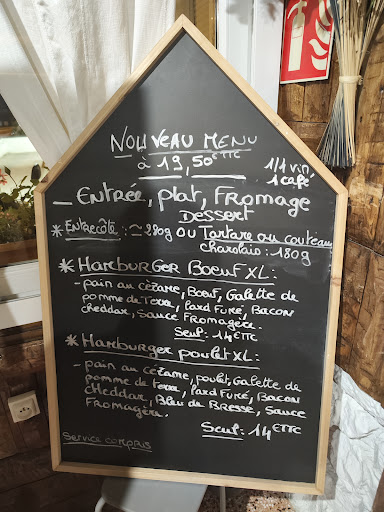 NOUVEAU MENU
à 19,50€ TTC
1/4 vin
1 café
_ Entrée, plat, Fromage
Dessert
* Entrecôte: ≃ 280g ou Tartare au couteau
charolais: 180g
* Hamburger Boeuf XL:
- pain au cézame, Boeuf, Galette de
pomme de Terre, Lard Fumé, Bacon
cheddar, sauce Fromagère.
Seul: 14€TTC
* Hamburger poulet XL:
- pain au cézame, poulet, Galette de
pomme de terre, Lard Fumé, Bacon
cheddar, Bleu de Bresse, Sauce
Fromagère.
Seul: 14€TTC
Service compris